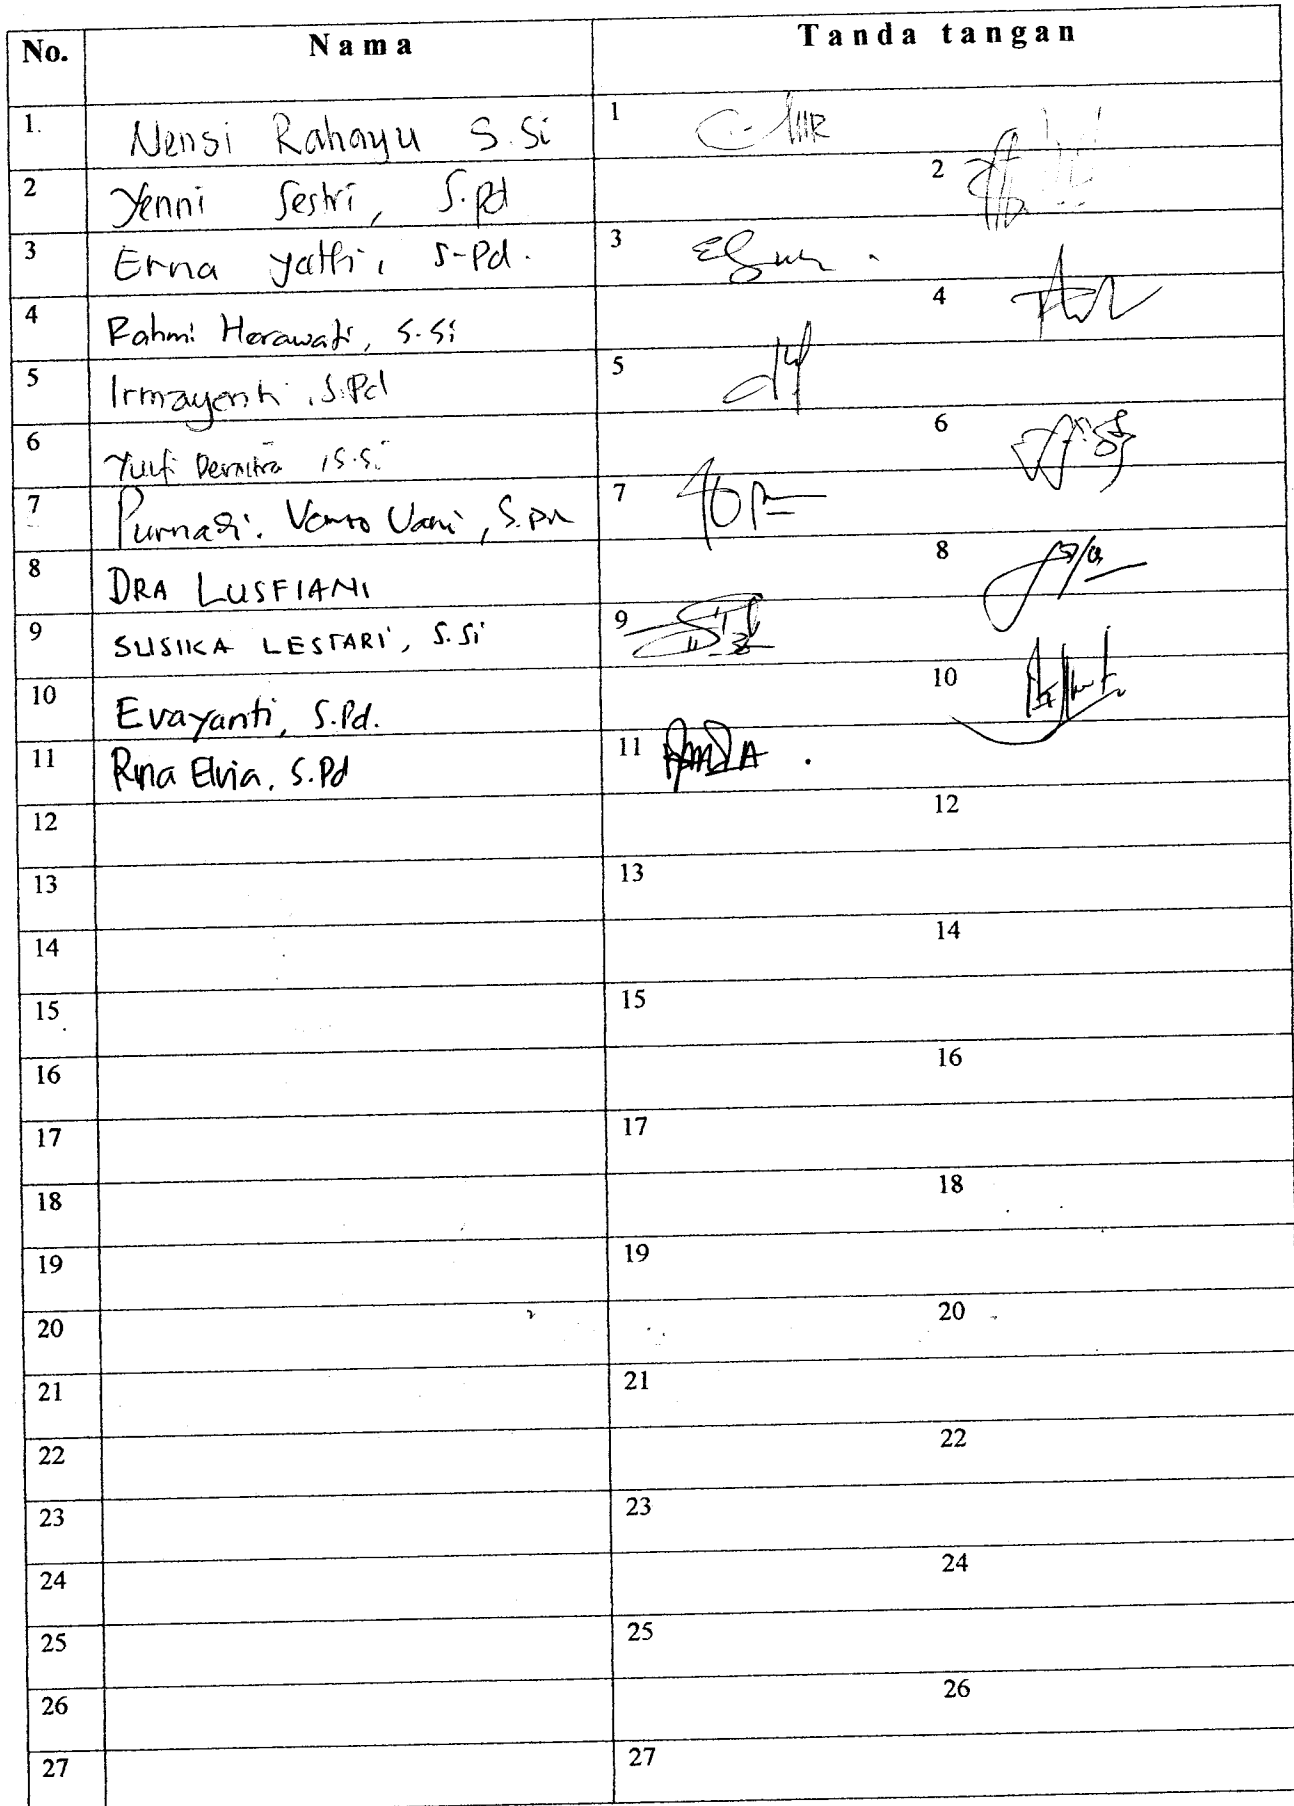 No. Nama Tanda tangan
1. Nensi Rahayu S.Si 1
2 Yenni Sestri, S.Pd 2
3 Erna yathi, S-Pd. 3
4 Rahmi Herawati, S.Si 4
5 Irmayenti, S.Pd 5
6 Yulfi , S.Si 6
7 Purnasi. Vani, S.Pd 7
8 DRA LUSFIANI 8
9 SUSIKA LESTARI, S.Si 9
10 Evayanti, S.Pd. 10
11 Rina Elvia, S.Pd 11
12 12
13 13
14 14
15 15
16 16
17 17
18 18
19 19
20 20
21 21
22 22
23 23
24 24
25 25
26 26
27 27